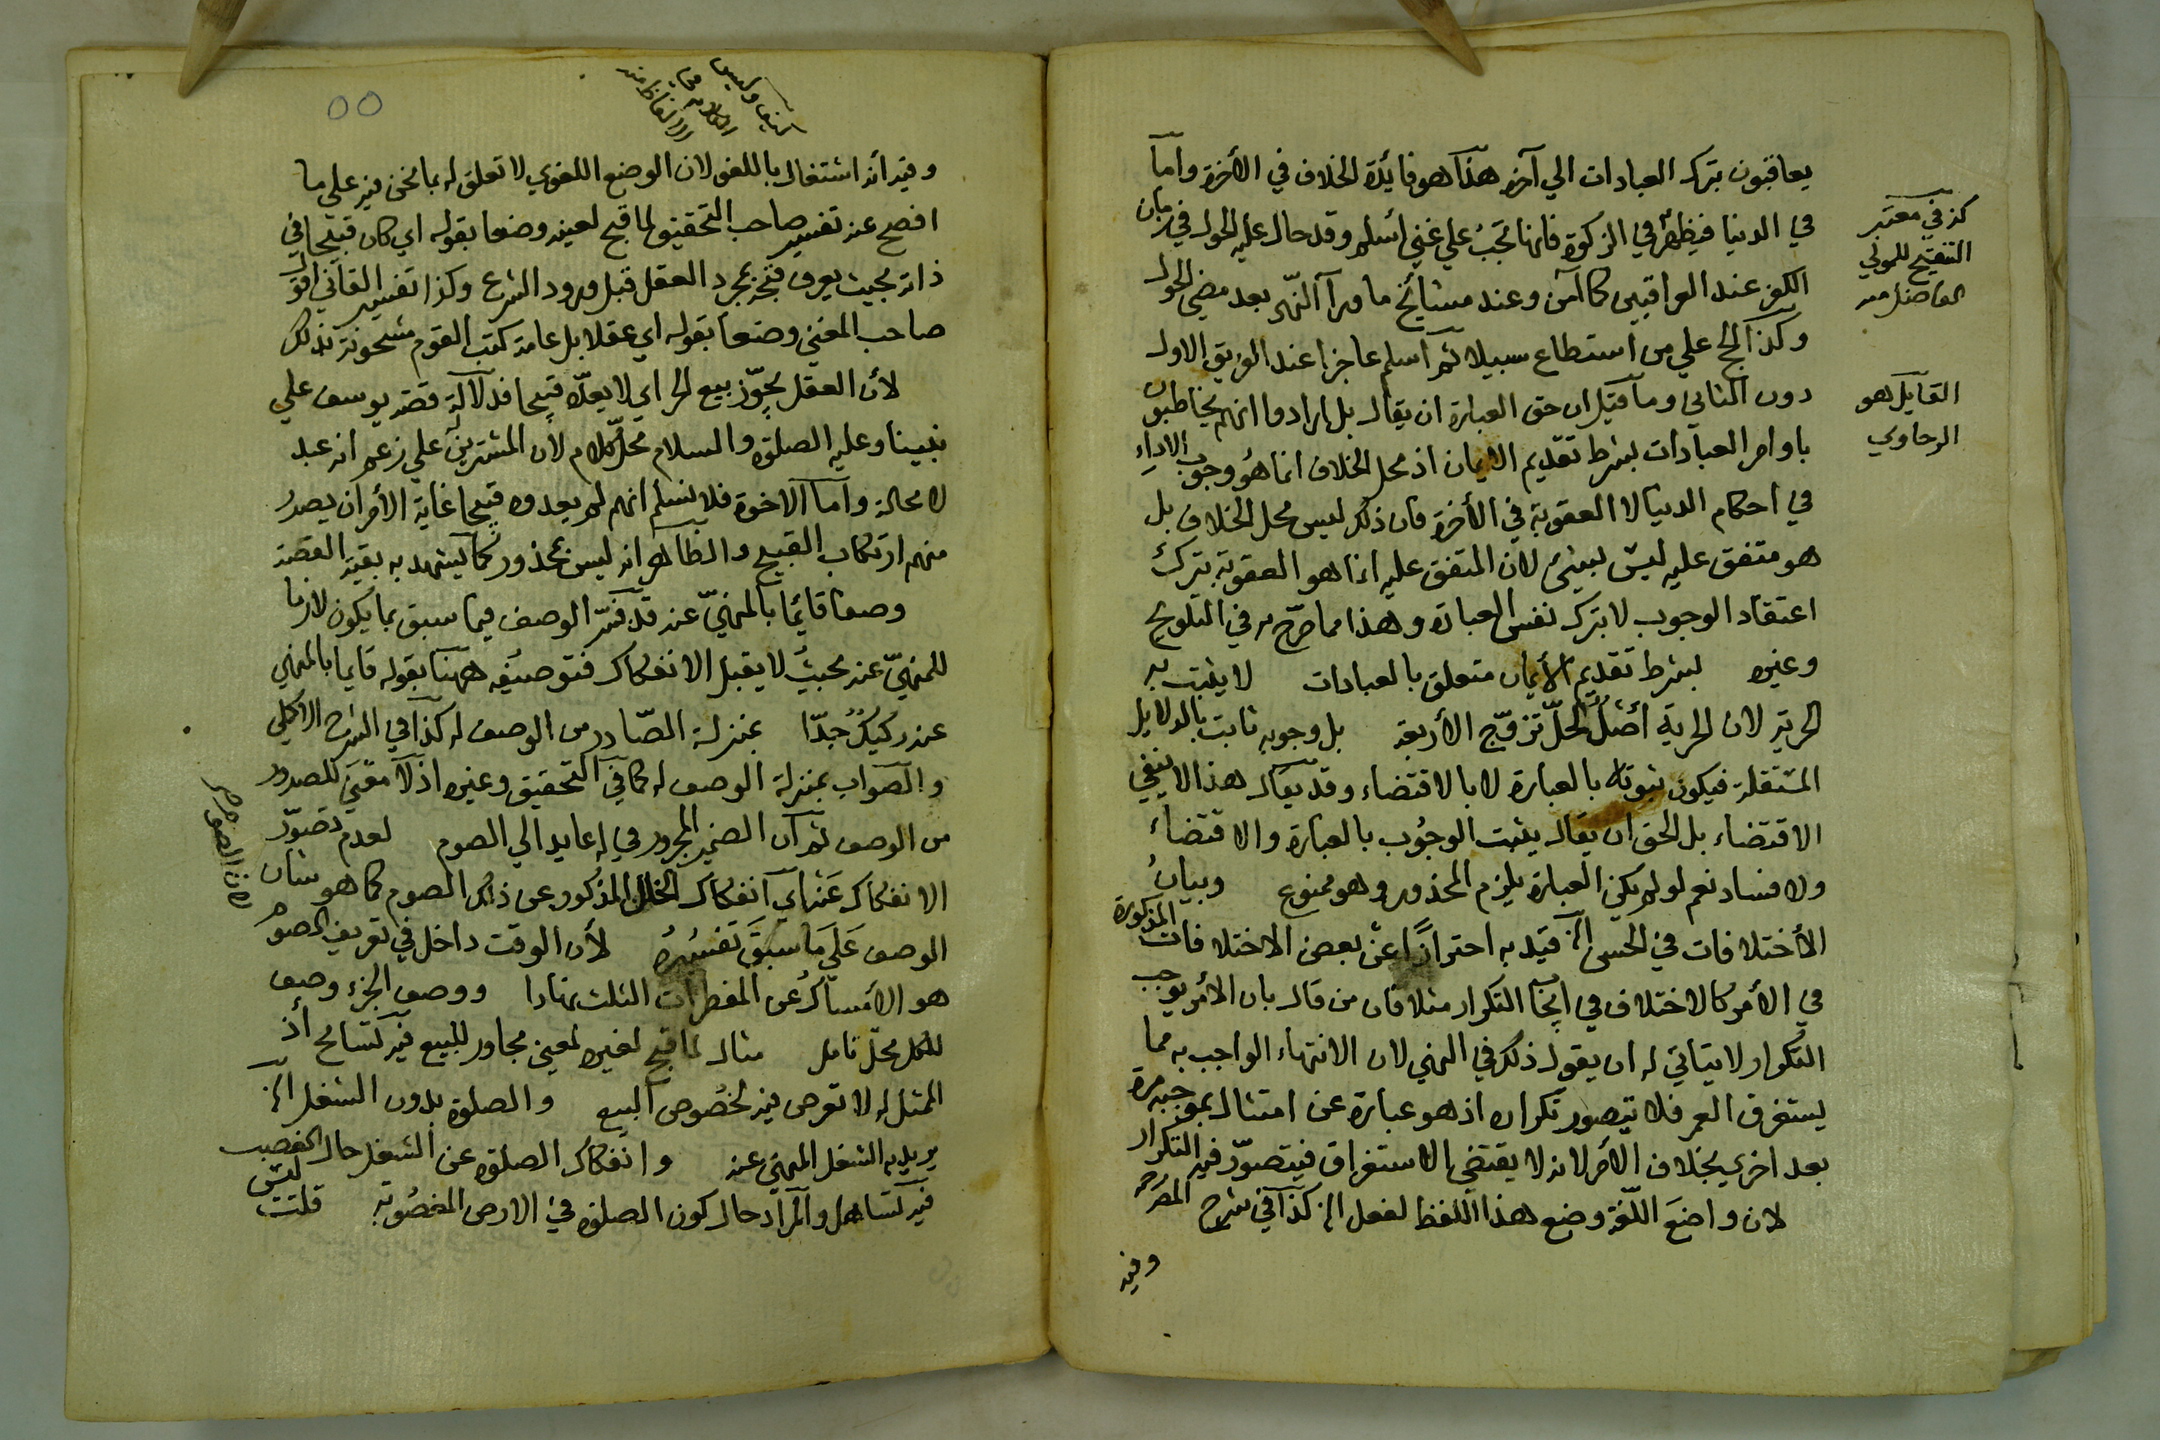 يعاقبون بترك العبادات الي آخره هذا هو فائدة الخلاف في الأخرة واما
في الدنيا فيظهر في الزكوة فانها تجب علي غني اسلم وقد حال عليه الحول في زمان
الكفر عند العراقيين كما مر وعند مشائخ ما ورآ النهر بعد مضي الحول
وكذا الحج علي من استطاع سبيلا ثم اسلم عاجزا عند الفريق الاول
دون الثاني وما قيل ان حق العبارة ان يقال بل ارادوا انهم يخاطبون
باوامر العبادات بشرط تقديم الايمان اذ محل الخلاف انما هو وجوب الاداء
في احكام الدنيا لا العقوبة في الأخرة فان ذلك ليس محل الخلاف بل
هو متفق عليه ليس بشيئ لان المتفق عليه انما هو العقوبة بترك
اعتقاد الوجوب لا بترك نفس العبادة وهذا مما صرح به في التلويح
وغيره بشرط تقديم الأيمان متعلق بالعبادات لا يثبت به
الحرية لان الحرية أصل لحل تزوج الأربعة بل وجوبه ثابت بالدلايل
المستقلة فيكون ثبوته بالعبارة لا بالاقتضاء وقد يقال هذا لا ينفي
الاقتضاء بل الحق ان يقال يثبت الوجوب بالعبارة والاقتضاء
ولا فساد نعم لو لم يكن العبارة يلزم المحذور وهو ممنوع وبيان
الأختلافات في الحسن الخ قيد به احترازا عن بعض الاختلافات المذكورة
في الأمر كالاختلاف في ايجاب التكرار مثلا فان من قال بان الأمر يوجب
التكرار لا يتاتي له ان يقول ذلك في النهي لان الانتهاء الواجب به مما
يستغرق العمر فلا يتصور تكراره اذ هو عبارة عن امتثال بموجبه مرة
بعد اخري بخلاف الأمر لانه لا يقتضي الاستغراق فيتصور فيه التكرار
لان واضع اللغة وضع هذا اللفظ لفعل الخ كذا في شرح المصرحه
وفيه
كذا في معتبر
التنقيح للمولي
الفاضل منه
القايل هو
الرهاوي
وفيه أنه اشتغال باللغو لان الوضع اللغوي لا تعلق له بما نحن فيه علي ما
افصح عنه تفسير صاحب التحقيق لما قبح لعينه وضعا بقوله اي كان قبيحا في
ذاته بحيث يعرف قبحه بمجرد العقل قبل ورود الشرع وكذا تفسير القاآني اقوال
صاحب المغني وضعا بقوله اي عقلا بل عامة كتب القوم مشحونة بذلك
لأن العقل يجوز بيع الحر اي لا يعده قبيحا فدلالة قصة يوسف علي
نبينا وعليه الصلوة والسلام محل كلام لأن المشترين علي زعم انه عبد
لا محالة واما الاخوة فلا نسلم انهم لم يعدوه قبيحا غاية الأمر ان يصدر
منهم ارتكاب القبيح والظاهر انه ليس بمحذور كما يشهد به بقية القصة
وصفا قايما بالمنهي عنه قد فسر الوصف فيما سبق بما يكون لازما
للمنهي عنه بحيث لا يقبل الانفكاك فتوصيفه ههنا بقوله قايما بالمنهي
عنه ركيك جدا بمنزلة الصادر من الوصف له كذا في الشرح الاكملي
والصواب بمنزلة الوصف له كما في التحقيق وغيره اذ لا معني للصدور
من الوصف ثم ان الضمير المجرور في له عايد الي الصوم لعدم تصور
الانفكاك عنه اي انفكاك الخلل المذكور عن ذلك الصوم كما هو شان
الوصف علي ما سبق تفسيره لأن الوقت داخل في تعريف الصوم
هو الأمساك عن المفطرات الثلث نهارا ووصف الجزء وصف
للكل محل تامل مثال لما قبح لغيره لمعني مجاور للبيع فيه تسامح اذ
الممثل له لا تعرض فيه لخصوص البيع والصلوة بدون الشغل الخ
يريد به الشغل المنهي عنه وانفكاك الصلوة عن الشغل حال الغصب
فيه تساهل والمراد حال كون الصلوة في الارض المغصوبة قلت ليس
لان الصوم